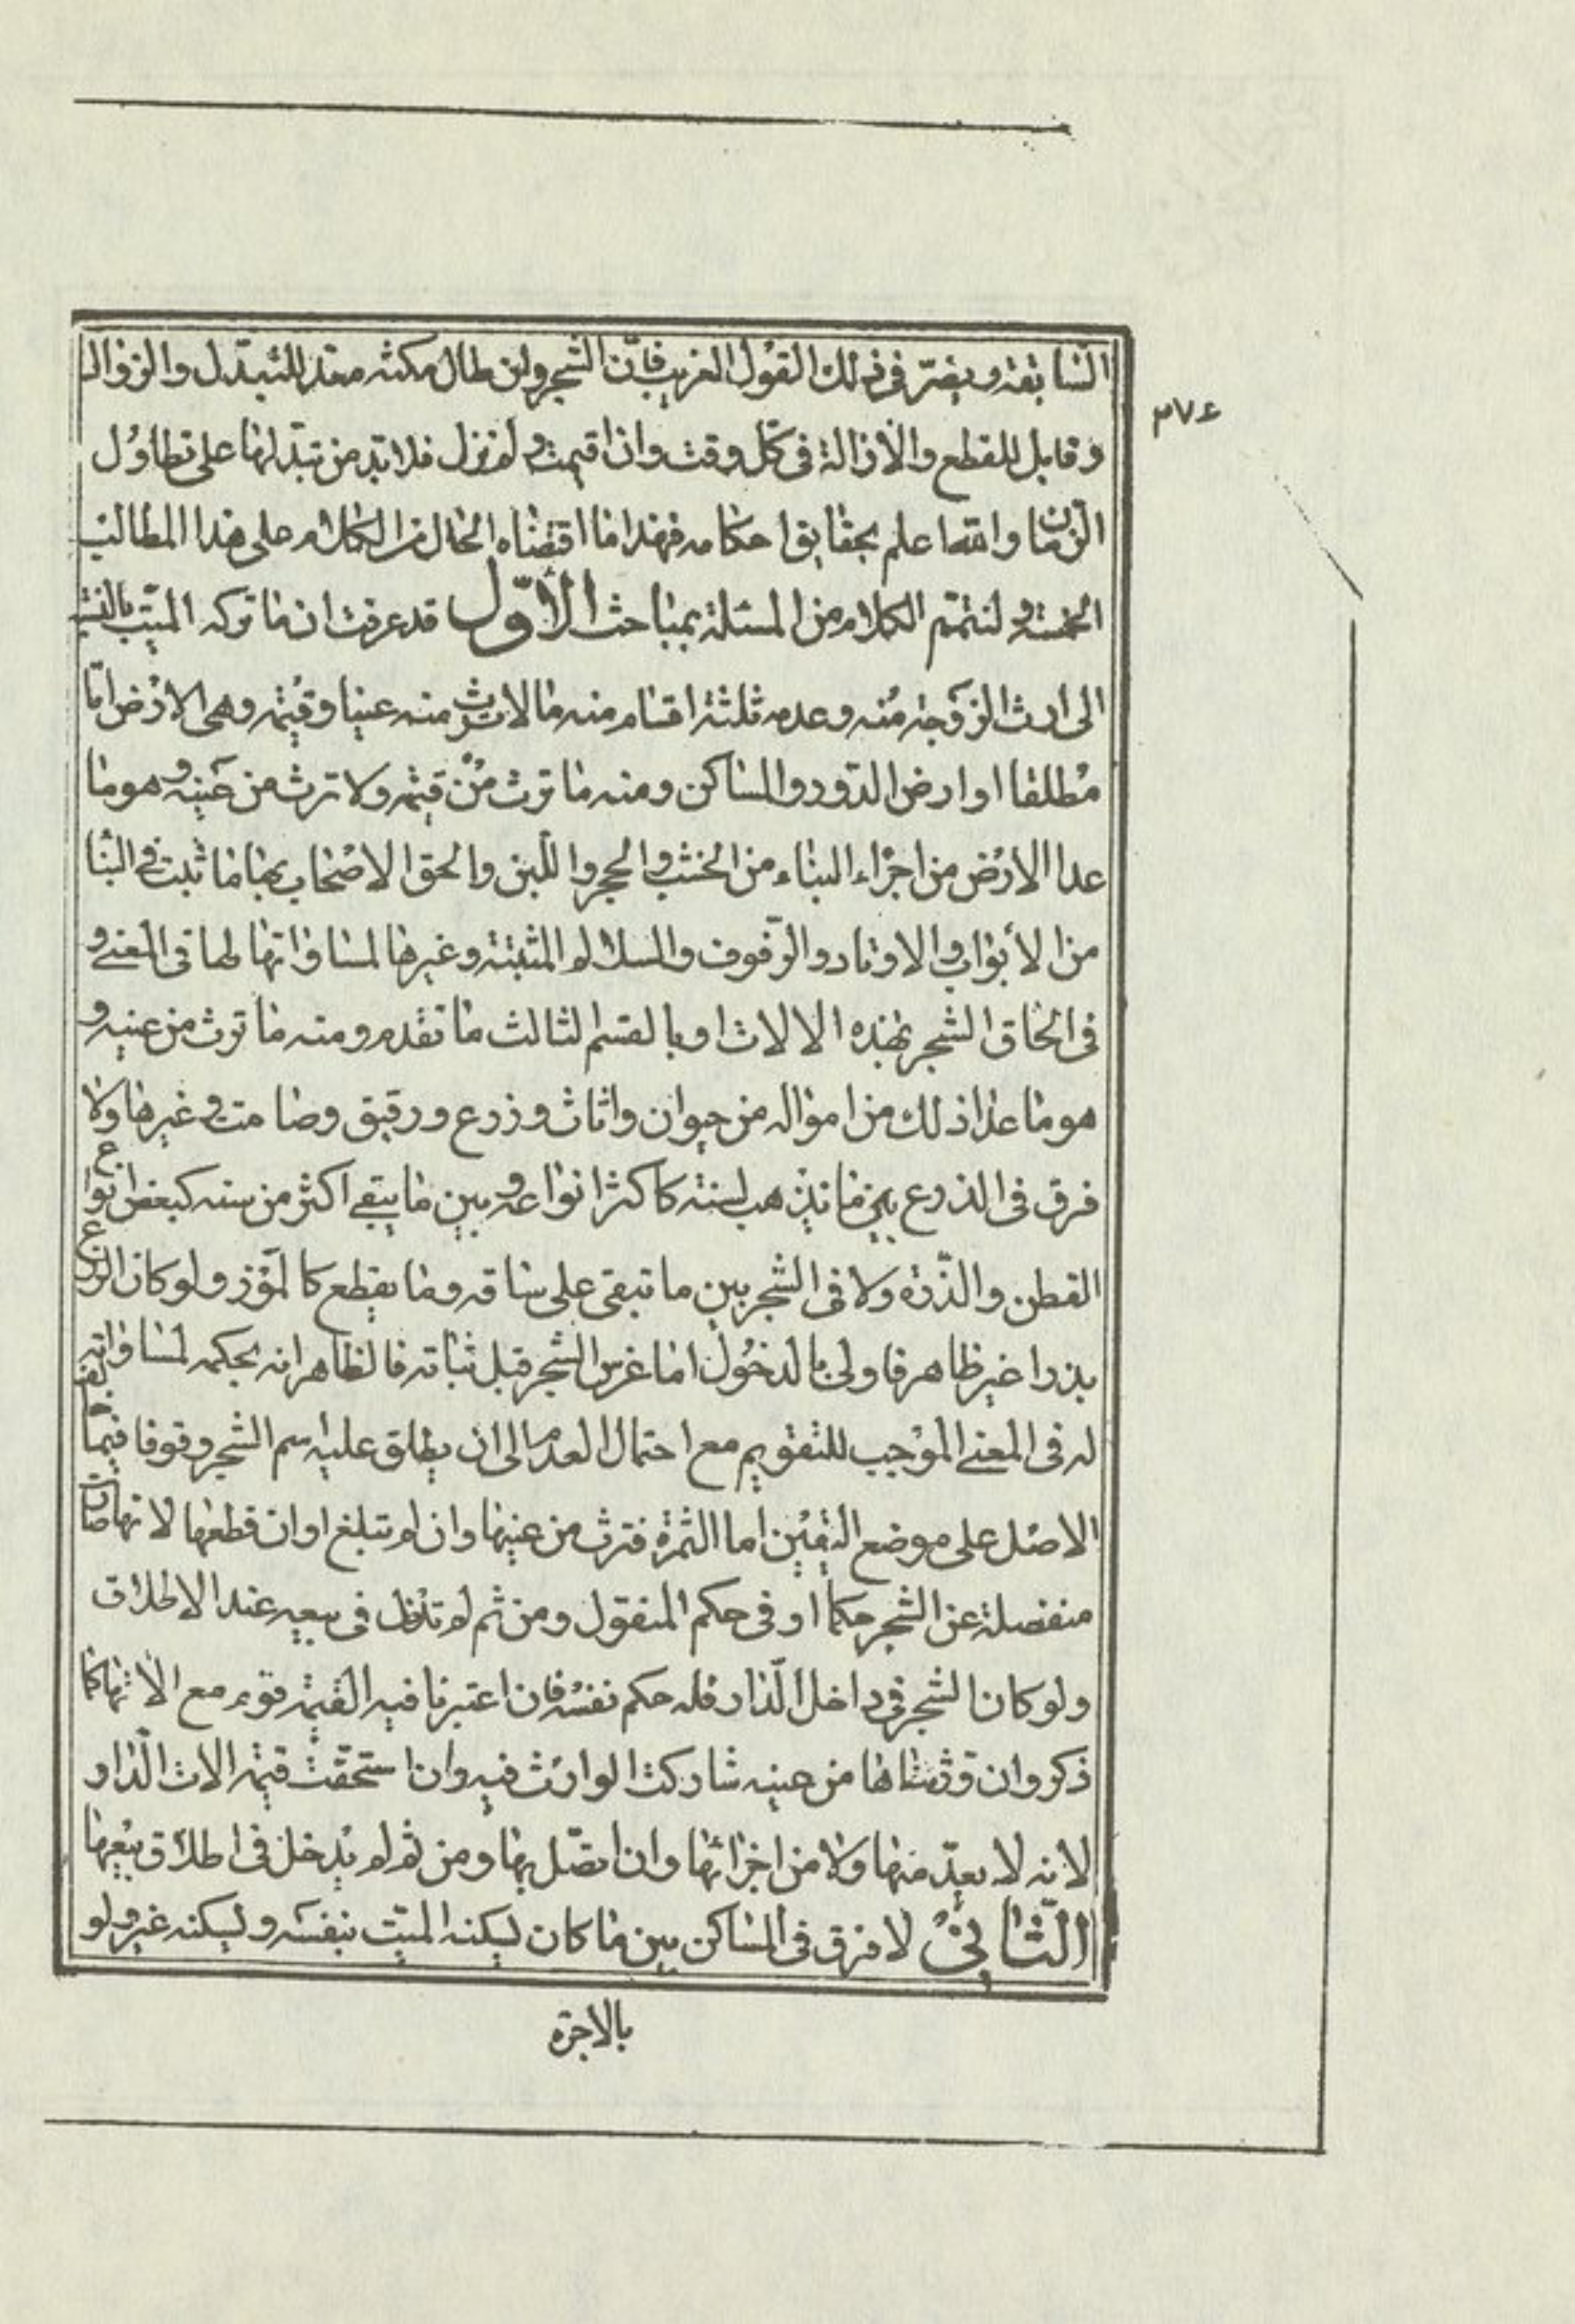 السابقة ويضر فى ذلك القول الغريب فان الشجر وان طال مكثه معد للتبدل والزوال
وقابل للقطع والازالة فى كل وقت واذا قيمت ولم نزل فلا بد من تبدلها على تطاول
الزمان والله اعلم بحقايق احكامه فهذا ما اقتضاه الحال من الكلام على هذا المطالب
الخمسة ولنتمم الكلام من المسئلة بمباحث الأول قد عرفت ان ما تركه الميت بالنسبة
الى ارث الزوجة منه وعدمه ثلثة اقسام منه ما لا ترث منه عينا وقيمة وهى الارض اما
مطلقا او ارض الدور والمساكن ومنه ما ترث من قيمته ولا ترث من عينه وهو ما
عدا الارض من اجزاء البناء من الخشب والحجر واللبن والحق الاصحاب بها ما ثبت فى البناء
من الأبواب والاوتاد والرفوف والسلالم المثبتة وغيرها لمساواتها لها فى المعنى و
فى الحاق الشجر بهذه الالات او بالقسم الثالث ما تقدم ومنه ما ترث من عينه و
هو ما عدا ذلك من امواله من حيوان واثاث وزرع ورقيق وصامت وغيرها ولا
فرق فى الزرع بين ما يذهب لسنته كاكثر انواعه وبين ما يبقى اكثر من سنة كبعض انواع
القطن والذرة ولا فى الشجر بين ما تبقى على ساقه وما يقطع كالموز ولو كان الزرع
بذرا غير ظاهر فاولى بالدخول اما غرس الشجر قبل ثباته فالظاهر انه بحكمه لمساواته
له فى المعنى الموجب للتقويم مع احتمال العدم الى ان يطلق عليه اسم الشجر وقوفا فيما خالف
الاصل على موضع اليقين اما الثمرة فترث من عينها وان لم تبلغ اوان قطعها لانها صارت
منفصلة عن الشجر حكما او فى حكم المنقول ومن ثم لم تدخل فى بيعه عند الاطلاق
ولو كان الشجر فى داخل الدار فله حكم نفسه فان اعتبرنا فيه القيمة قوم مع الاتها كما
ذكر وان ورثناها من عينه شاركت الوارث فيه وان استحقت قيمة الات الدار
لانه لا يعد منها ولا من اجزائها وان اتصل بها ومن ثم لم يدخل فى اطلاق بيعها
الثانى لا فرق فى المساكن بين ما كان يسكنه الميت بنفسه ويسكنه غيره ولو
بالاجرة
٣٧٤